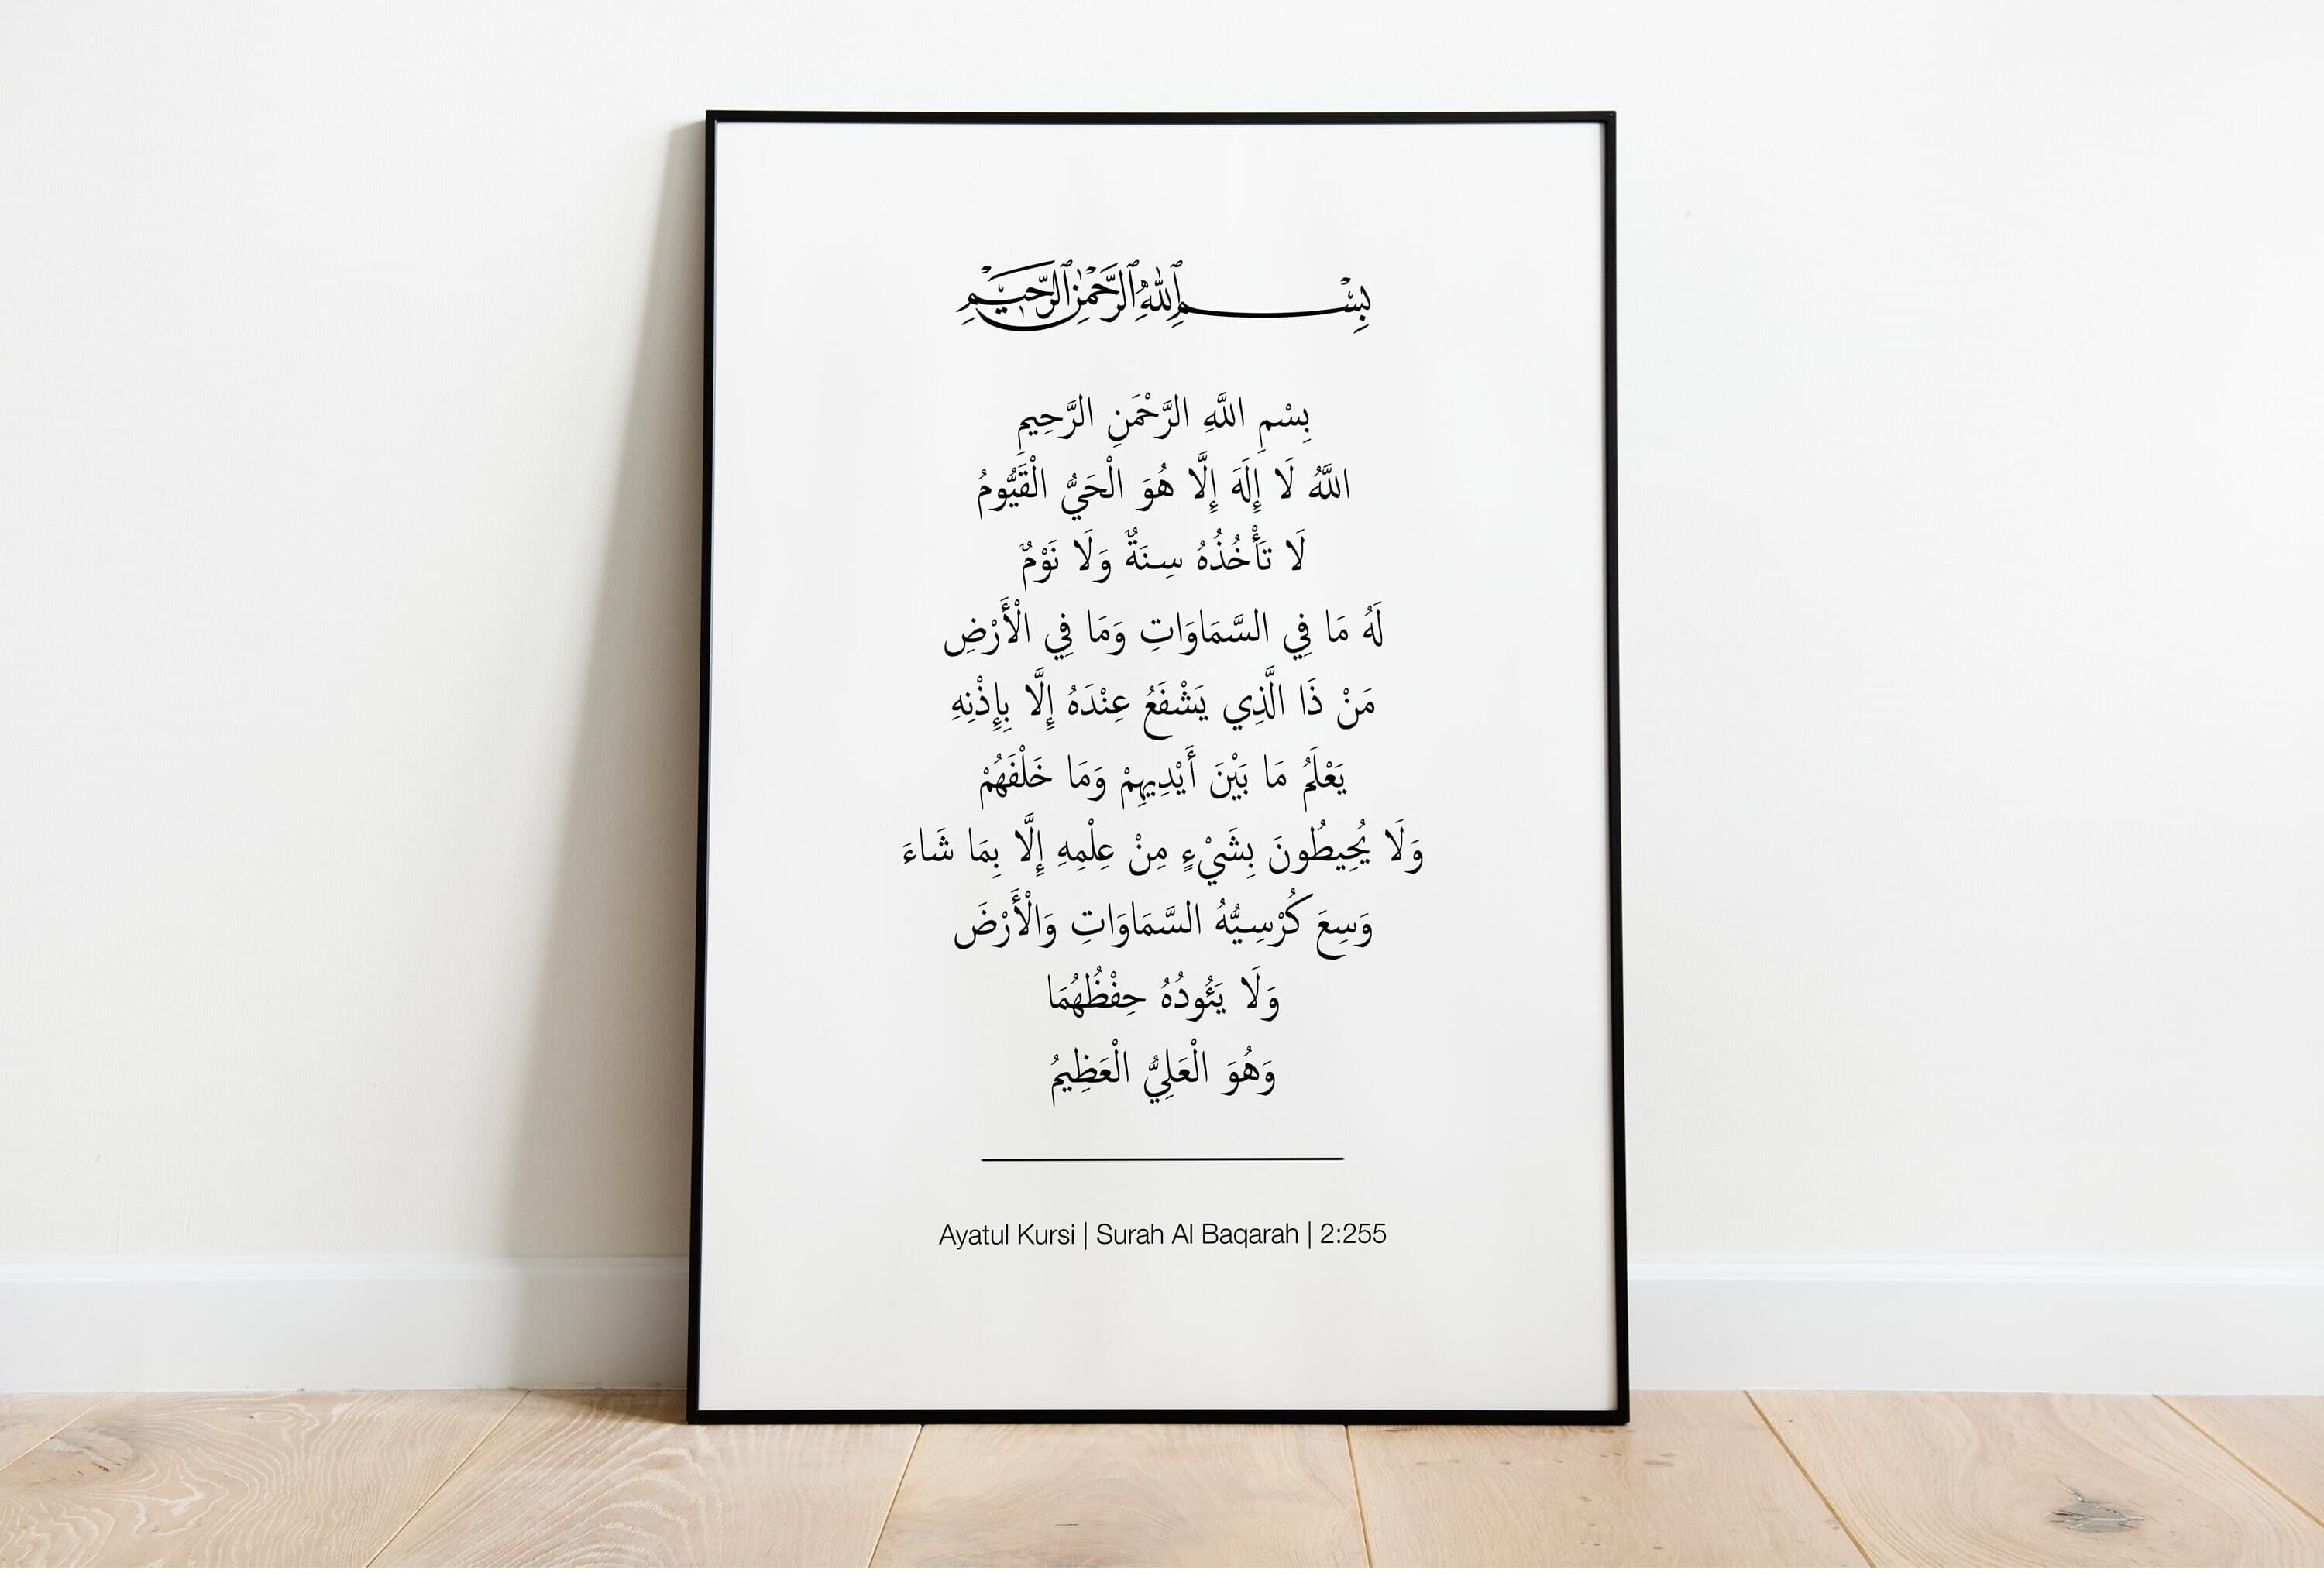 بِسْمِ ٱللَّهِ ٱلرَّحْمَٰنِ ٱلرَّحِيمِ
بِسْمِ اللَّهِ الرَّحْمَنِ الرَّحِيمِ
اللَّهُ لَا إِلَهَ إِلَّا هُوَ الْحَيُّ الْقَيُّومُ
لَا تَأْخُذُهُ سِنَةٌ وَلَا نَوْمٌ
لَهُ مَا فِي السَّمَاوَاتِ وَمَا فِي الْأَرْضِ
مَنْ ذَا الَّذِي يَشْفَعُ عِنْدَهُ إِلَّا بِإِذْنِهِ
يَعْلَمُ مَا بَيْنَ أَيْدِيهِمْ وَمَا خَلْفَهُمْ
وَلَا يُحِيطُونَ بِشَيْءٍ مِنْ عِلْمِهِ إِلَّا بِمَا شَاءَ
وَسِعَ كُرْسِيُّهُ السَّمَاوَاتِ وَالْأَرْضَ
وَلَا يَئُودُهُ حِفْظُهُمَا
وَهُوَ الْعَلِيُّ الْعَظِيمُ
Ayatul Kursi | Surah Al Baqarah | 2:255